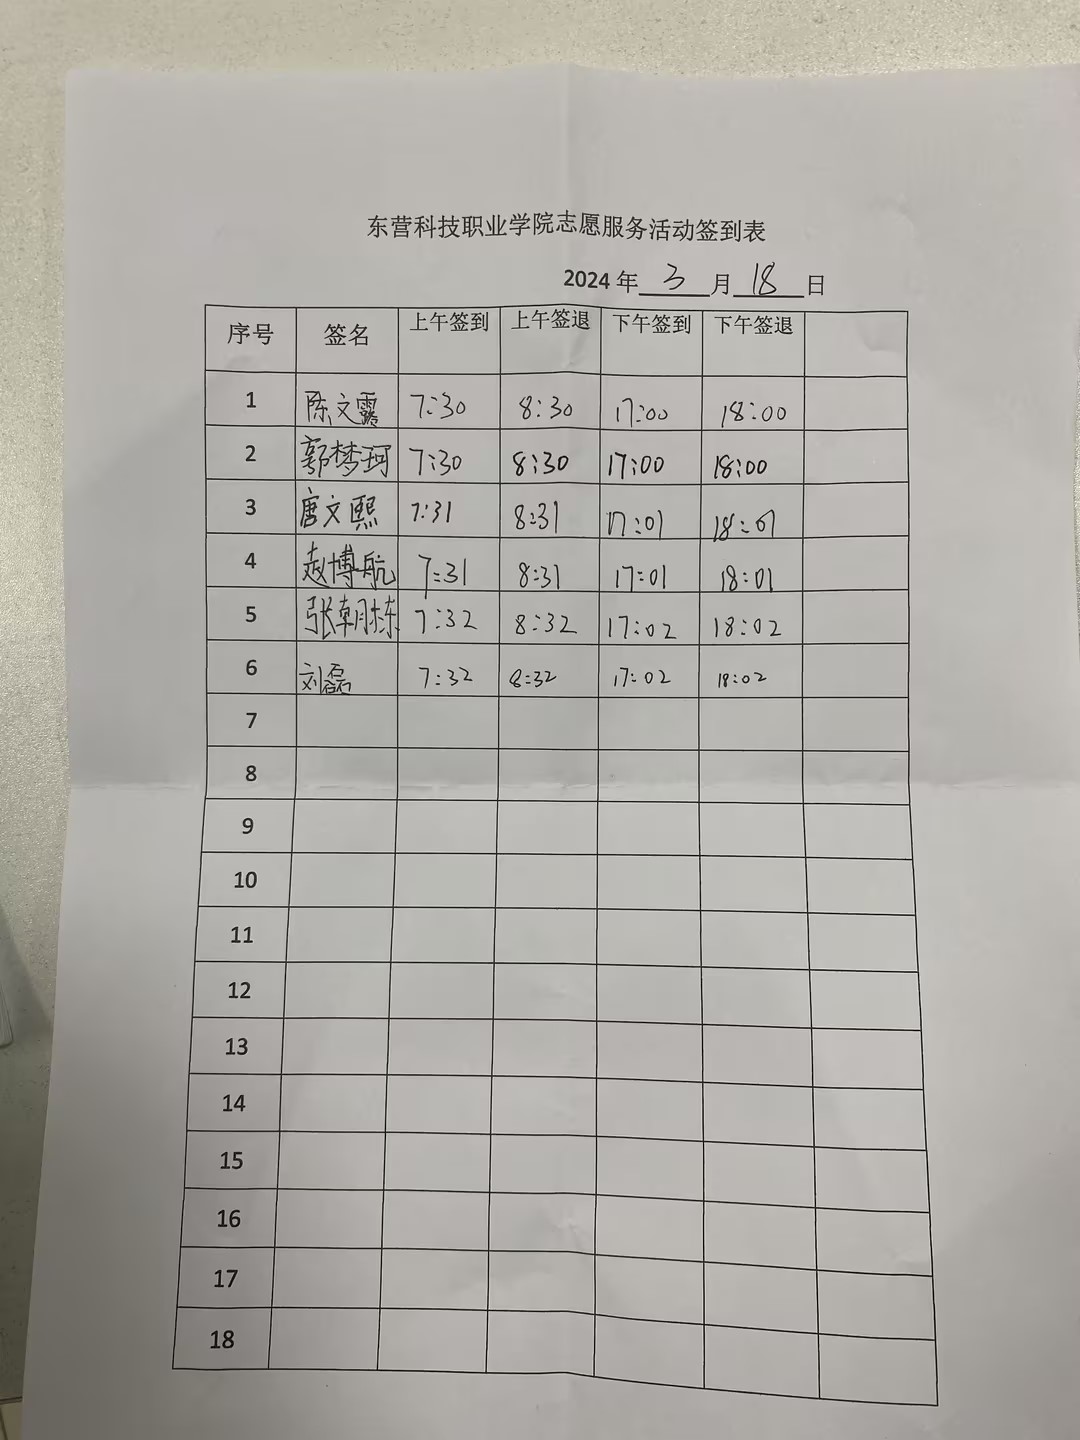 东营科技职业学院志愿服务活动签到表
2024 年 3 月 18 日
序号 签名 上午签到 上午签退 下午签到 下午签退
1 陈文露 7:30 8:30 17:00 18:00
2 郭梦珂 7:30 8:30 17:00 18:00
3 唐文熙 7:31 8:31 17:01 18:01
4 赵博航 7:31 8:31 17:01 18:01
5 张朝栋 7:32 8:32 17:02 18:02
6 刘磊 7:32 8:32 17:02 18:02
7
8
9
10
11
12
13
14
15
16
17
18